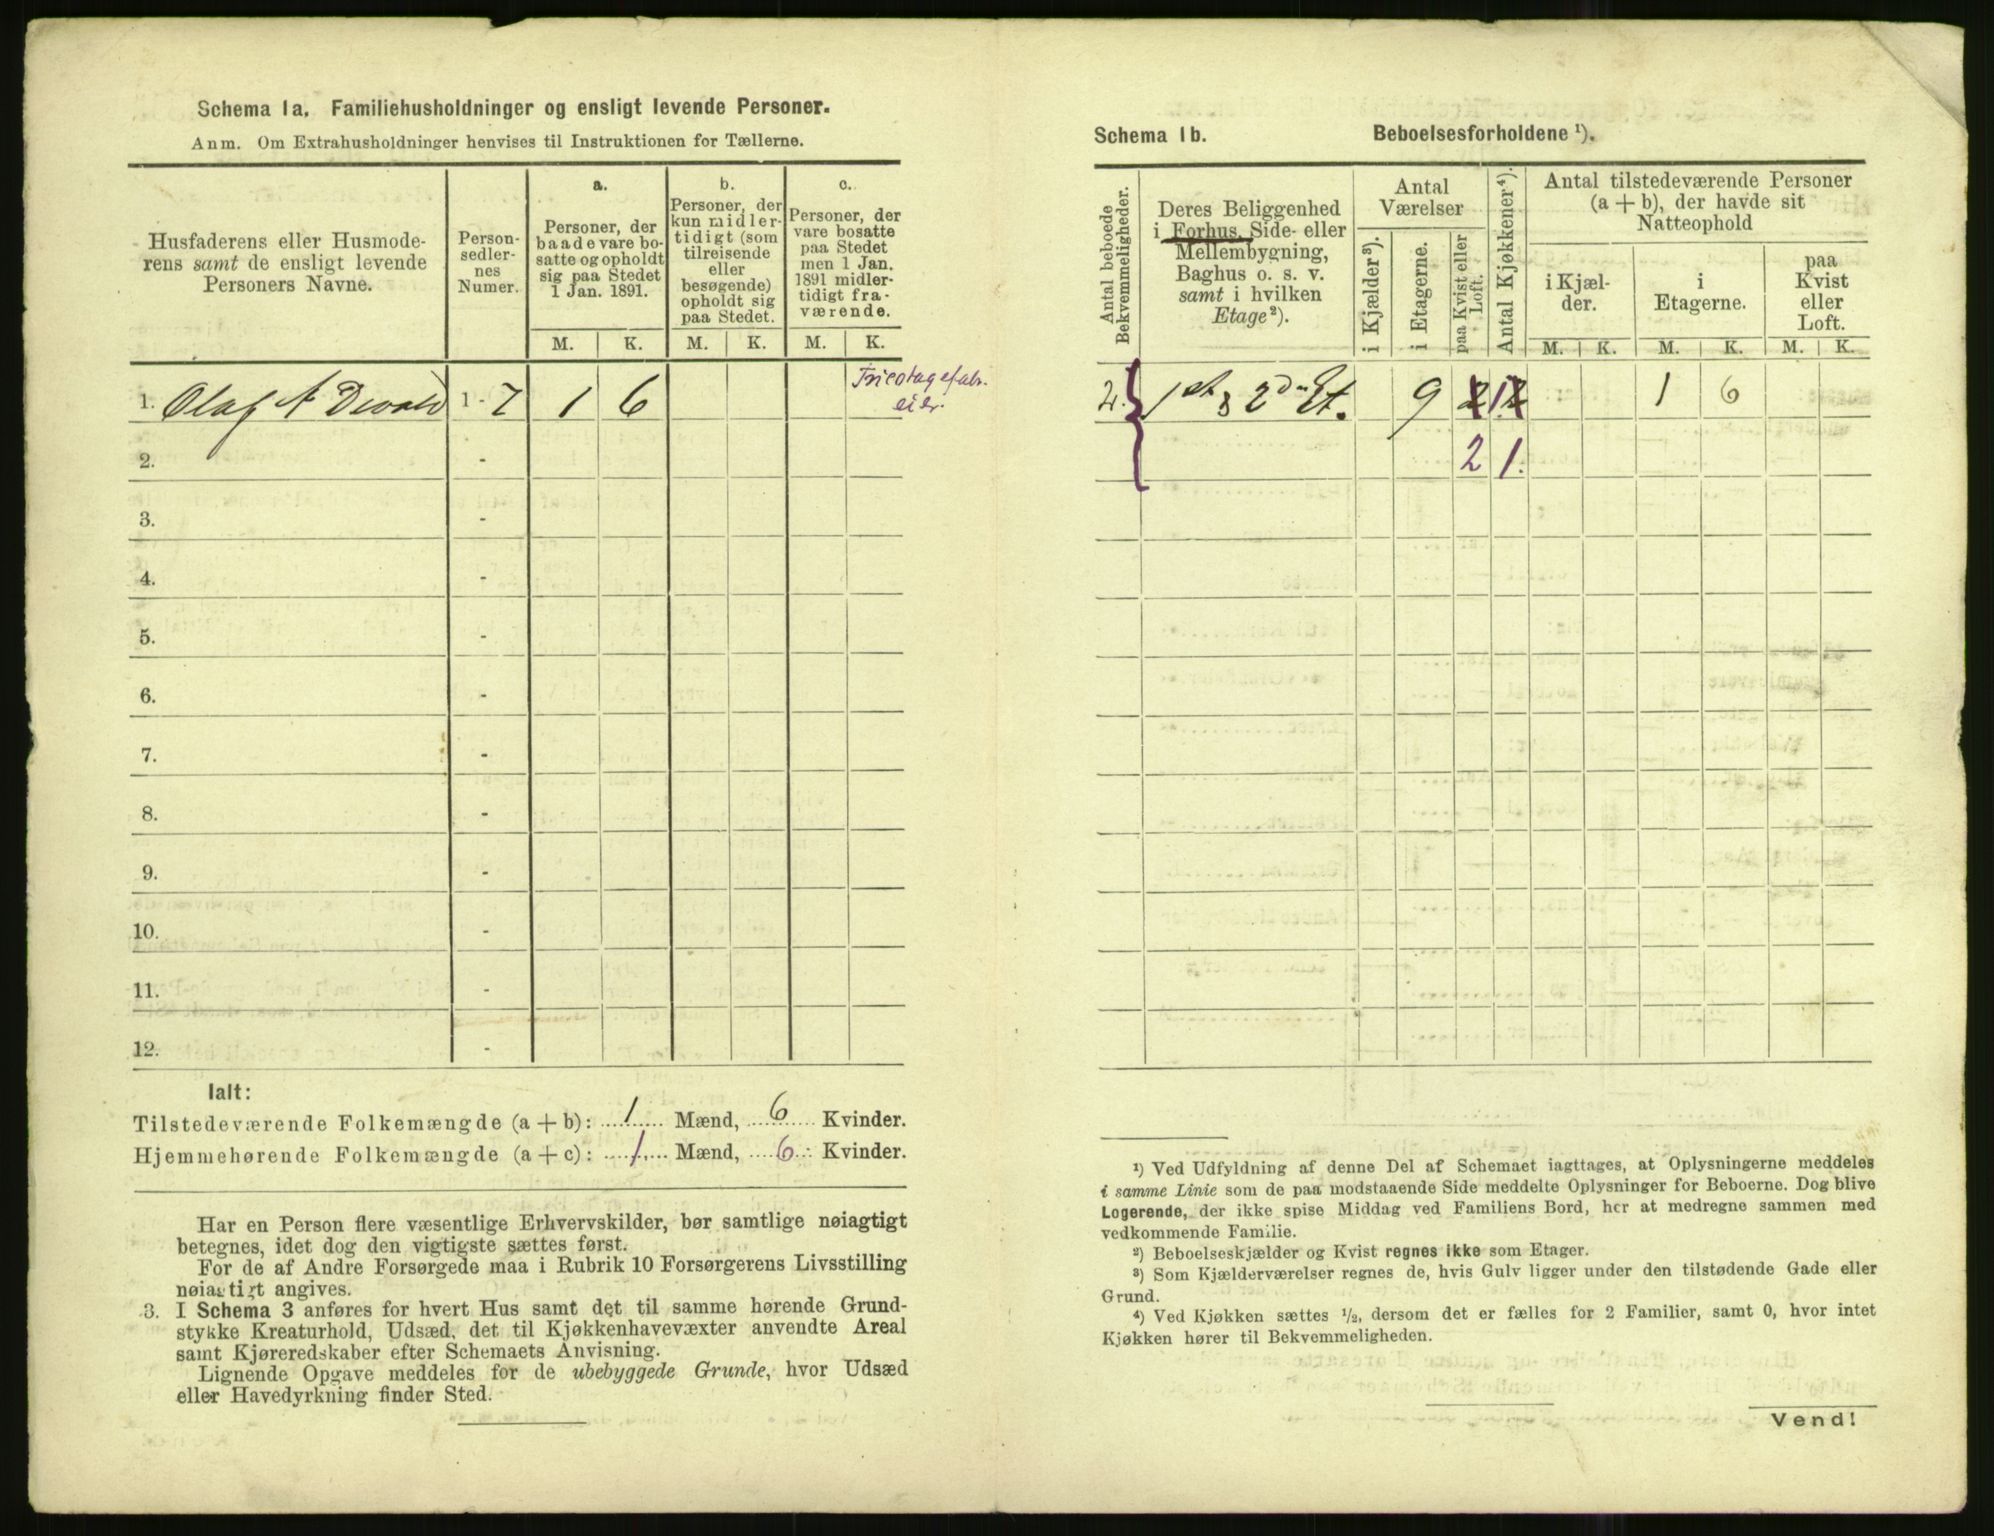 Schema 1a. Familiehusholdninger og ensligt levende Personer.
Anm. Om Extrahusholdninger henvises til Instruktionen for Tællerne.
Husfaderens eller Husmode-
rens samt de ensligt levende
Personers Navne.
Person-
sedler-
nes
Numer.
a.
Personer, der
baade vare bo-
satte og opholdt
sig paa Stedet
1 Jan. 1891.
b.
Personer, der
kun midler-
tidigt (som
tilreisende
eller
besøgende)
opholdt sig
paa Stedet.
c.
Personer, der
vare bosatte
paa Stedet
men 1 Jan.
1891 midler-
tidigt fra-
værende.
M. K. M. K. M. K.
1. Olaf A Devold 1 - 7 1 6
Tricotagefabr.
eier.
2. -
3. -
4. -
5. -
6. -
7. -
8. -
9. -
10. -
11. -
12. -
Ialt:
Tilstedeværende Folkemængde (a + b): 1 Mænd, 6 Kvinder.
Hjemmehørende Folkemængde (a + c): 1 Mænd, 6 Kvinder.
Har en Person flere væsentlige Erhvervskilder, bør samtlige nøiagtigt
betegnes, idet dog den vigtigste sættes først.
For de af Andre Forsørgede maa i Rubrik 10 Forsørgerens Livsstilling
nøiagtigt angives.
3. I Schema 3 anføres for hvert Hus samt det til samme hørende Grund-
stykke Kreaturhold, Udsæd, det til Kjøkkenhavevæxter anvendte Areal
samt Kjøreredskaber efter Schemaets Anvisning.
Lignende Opgave meddeles for de ubebyggede Grunde, hvor Udsæd
eller Havedyrkning finder Sted.
Schema 1b. Beboelsesforholdene ¹).
Antal beboede
Bekvemmeligheder.
Deres Beliggenhed
i Forhus, Side- eller
Mellembygning,
Baghus o. s. v.
samt i hvilken
Etage²).
Antal
Værelser
i Kjælder³).
i Etagerne.
paa Kvist eller
Loft.
Antal Kjøkkener⁴).
Antal tilstedeværende Personer
(a + b), der havde sit
Natteophold
i Kjæl-
der.
i
Etagerne.
paa
Kvist
eller
Loft.
M. K. M. K. M. K.
2. 1st & 2den Et. 9 2 1 2 1 6
2 1.
¹) Ved Udfyldning af denne Del af Schemaet iagttages, at Oplysningerne meddeles
i samme Linie som de paa modstaaende Side meddelte Oplysninger for Beboerne. Dog blive
Logerende, der ikke spise Middag ved Familiens Bord, her at medregne sammen med
vedkommende Familie.
²) Beboelseskjælder og Kvist regnes ikke som Etager.
³) Som Kjælderværelser regnes de, hvis Gulv ligger under den tilstødende Gade eller
Grund.
⁴) Ved Kjøkken sættes ¹/₂, dersom det er fælles for 2 Familier, samt 0, hvor intet
Kjøkken hører til Bekvemmeligheden.
Vend!